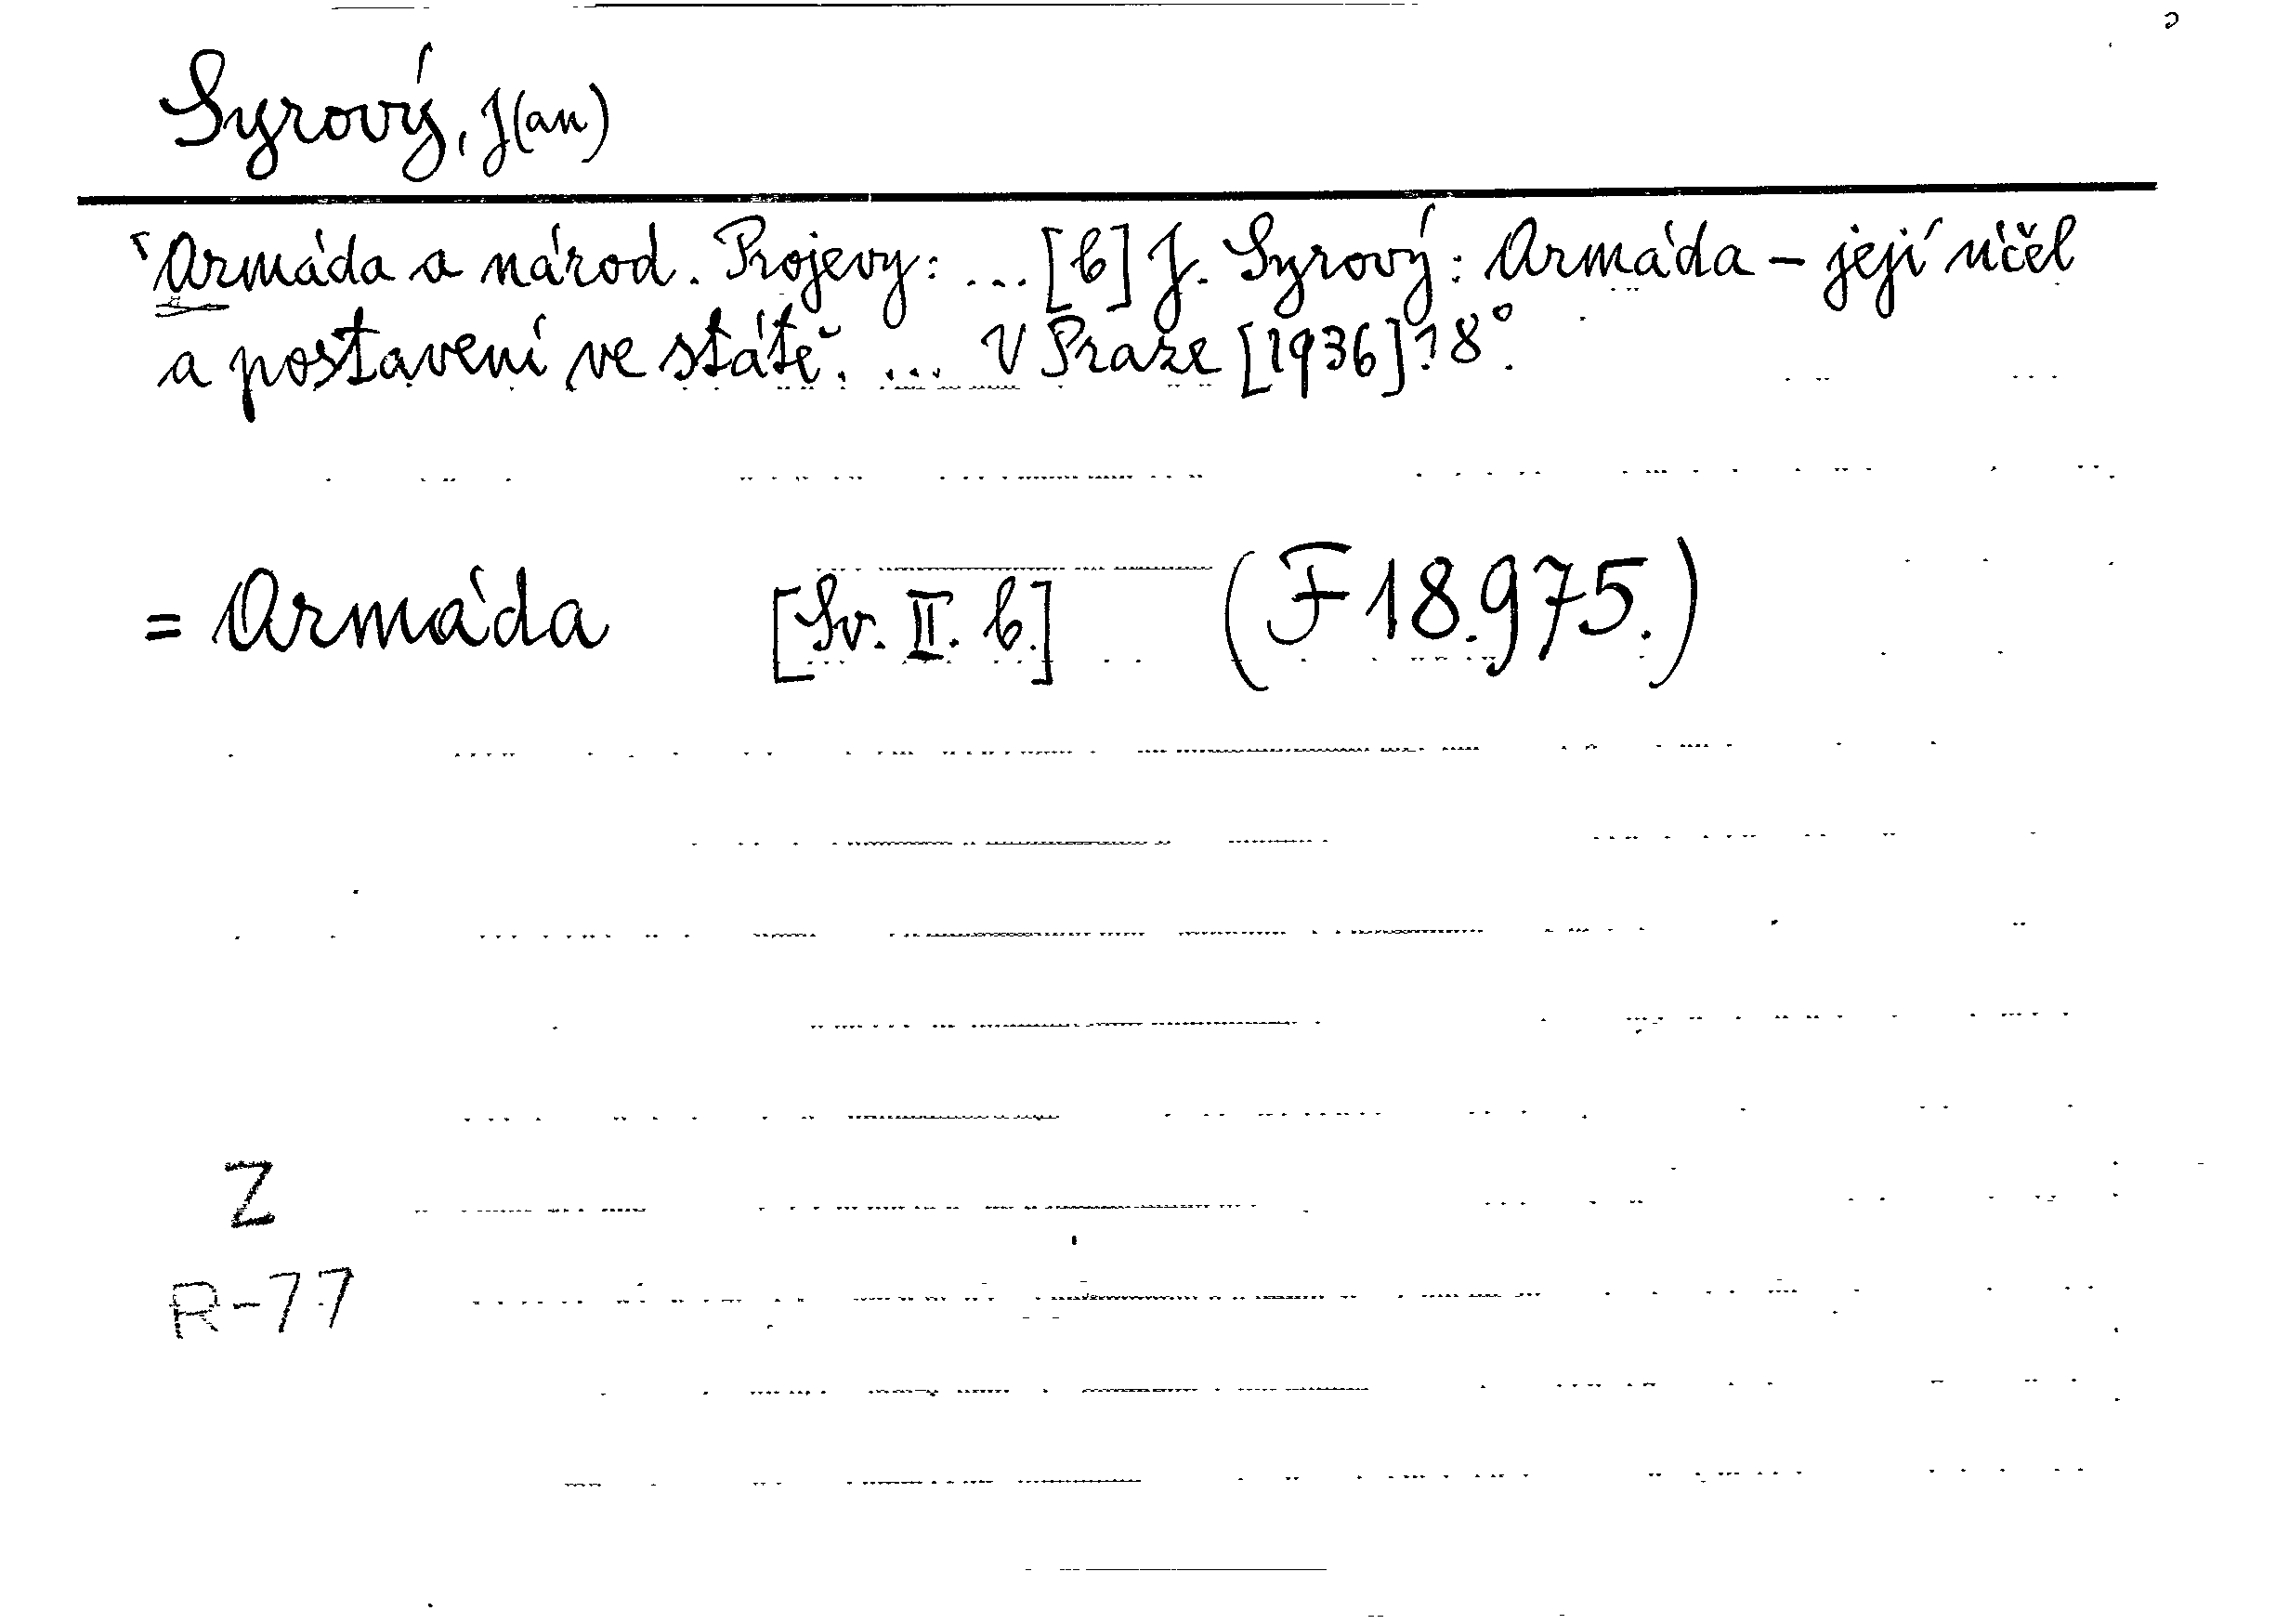 Syrový, J(an)
Armáda a národ. Projevy: ... [b] J. Syrový: Armáda – její účel
a postavení ve státě. ... V Praze [1936]. 8°.
= Armáda [Sv. II. b.] (F 18.975.)
Z
R-77